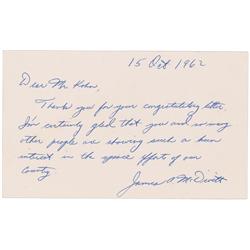 15 Oct 1962
Dear Mr Kohn,
Thank you for your congratulatory letter.
I'm certainly glad that you and so many
other people are showing such a keen
interest in the space effort of our
country.
James A McDivitt